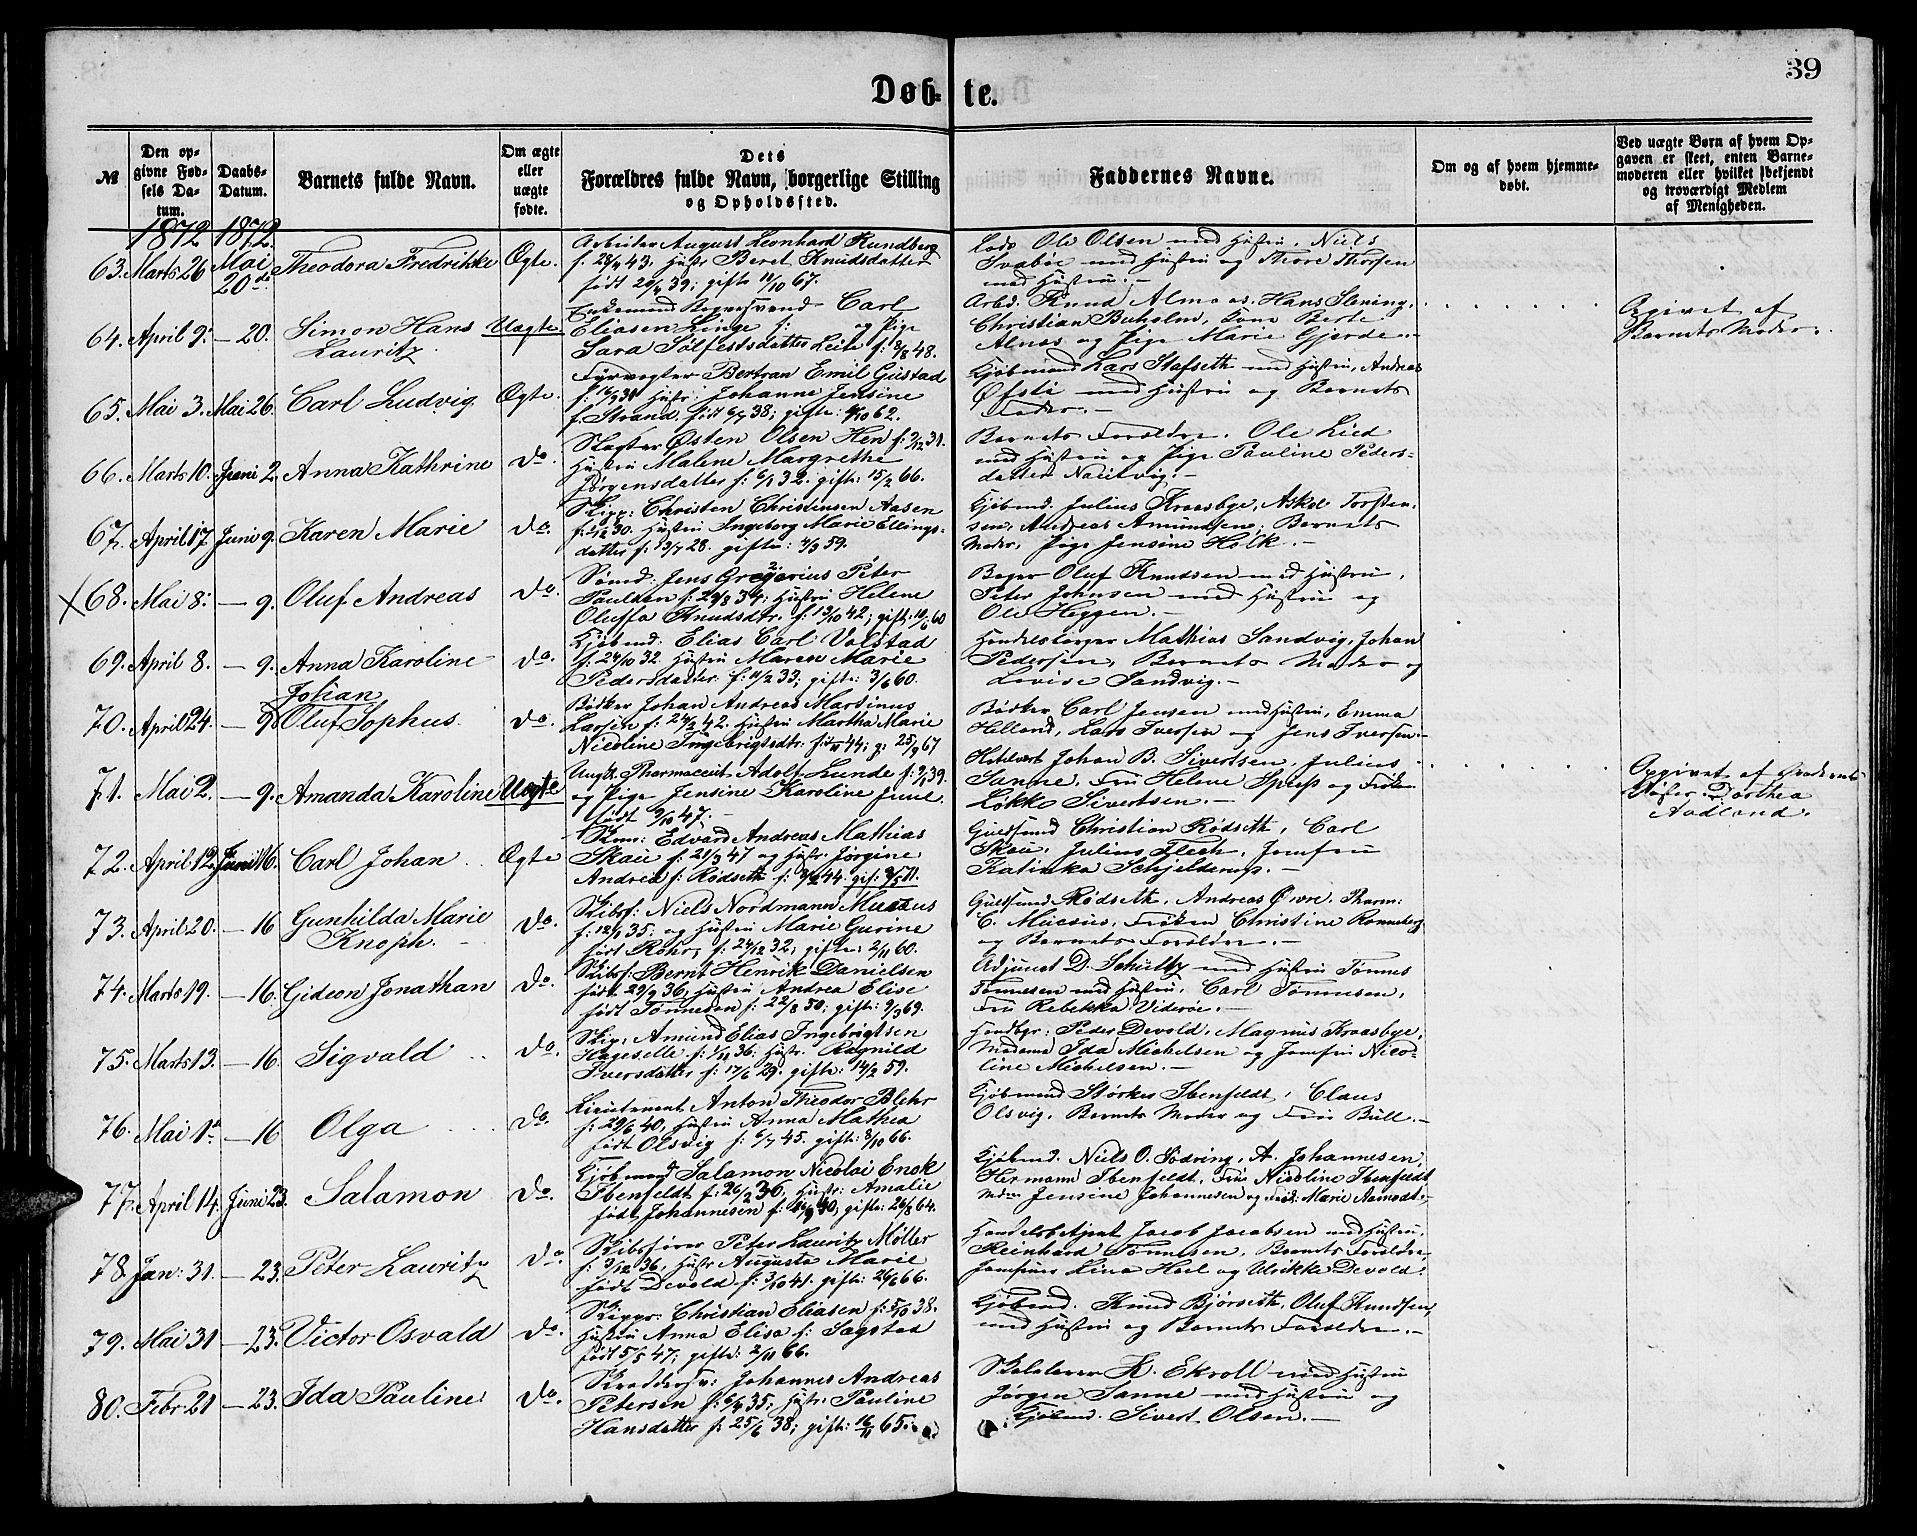 39
Døb- te.
№
Den opgivne Fødsels Datum.
Daabs-Datum.
Barnets fulde Navn.
Om ægte eller uægte fødte.
Dets Forældres fulde Navn, borgerlige Stilling og Opholdssted.
Faddernes Navne.
Om og af hvem hjemmedøbt.
Ved uægte Børn af hvem Opgaven er skeet, enten Barnemoderen eller hvilket bekjendt og troværdigt Medlem af Menigheden.
1872 1872.
63. Marts 26 Mai 20de Theodora Fredrikke Ægte.
Arbeider August Leonhard Rundberg
f. 28/4 43. Hustr Beret Knudsdatter
født 29/4 39; gift 11/10 67.
Ole Olsen med Hustru, Niels
Svabøe med Hustru og Thore Thorsen
med Hustru.
64. April 9. — 20. Simon Hans Lauritz Uægte
Enkemand Carl
Eliasen Linge f: og Pige
Sara Sølfestsdatter Leite f: 8/8 48.
Arbd. Knud Almaas, Hans Slening,
Christian Buholm, Berte
Alnæs og Pige Marie Gjerde.
Opgivet af
Barnets Moder.
65. Mai 3. Mai 26. Carl Ludvig Ægte.
Fyrvogter Bertran Emil Gustad
Hustr. Johanne Jensine
f. Strand. født 6/7 38; gift: 62.
Kjøbmand Lars Stafseth med Hustru, Andreas
Øfsti med Hustru og Barnets
Fader.
66. Marts 10. Juni 2. Anna Kathrine do.
Slagter Østen Olsen Hen f: 3/12 31.
Hustru Malene Margrethe
Jørgensdatter f: 6/1 32. gift: 15/2 66.
Barnets Forældre, Ole Lied
med Hustru og Pige Pauline Peders-
datter
67. April 17 Juni 9. Karen Marie do.
Skipp: Christen Christensen Aasen
30. Hustru Ingeborg Marie Ellings-
datter f: 13/7 28. gift: 4/9 59.
Kjøbmd. Julius Kraasbye, Askel Torsten-
sen, Andreas Amundsen, Barnets
Moder, Pige Jensine Holk.
68. Mai 8. — 9. Oluf Andreas do.
Sømd. Jens Gregorius Peter
Paulsen f: 29/8 34; Hustru Helene
Oluffa Knudsdtr. f: 13/10 42; gift: 10/6 60
Bager Oluf Knudsen med Hustru,
Peter Johnsen med Hustru og
Ole Heggen.
69. April 8. — 9. Anna Karoline do.
Kjøbmd: Elias Carl Volstad
f. 24/10 32 Hustru Maren Marie
Pedersdatter f: 11/2 33; gift: 3/6 60.
Handelsborger Mathias Sandvig, Johan
Pedersen, Barnets Moder og
Lovise Sandvig.
70. April 24. — 9 Johan Oluf Sophus do.
Bødker Johan Andreas Martinus
Larsen f: 24/2 42. Hustru Martha Marie
Nicoline Ingebrigtsdtr. 44; g. 25/9 67
Bødker Carl Jensen med Hustru, Emma
Helland, Lars Iversen og Jens Iversen.
71. Mai 2. — 9. Amanda Karoline Uægte
Ungk. Pharmaceut Adolf Lunde f: 39.
og Pige Jensine Karoline Juul.
født 9/10 47;
Johan B. Sivertsen, Julius
Sanne, Fru Helene og Frøken
Løkke Sivertsen.
Opgivet af
Dorthea
Aadland.
72. April 12. Juni 16. Carl Johan Ægte
Skm: Edvard Andreas Mathias
Skau f: 21/3 47 og Hustr: Jørgine
Andrea f: Rødseth f: 44. gift: 71.
Guldsmd Christian Rødseth, Carl
Skau, Julius Flech, Jomfru
Katinka Schjelderup.
73. April 20. — 16 Gunhilda Marie Knoph. do.
Skibsf: Niels Nordmann Mucsus
f. 12/1 35. og Hustru Marie Gurine
født Rohr, f: 24/12 32; gift: 2/11 60.
Guldsmd Rødseth, Andreas Øvre, Pharm:
C. Mucsus, Frøken Christine Rønneberg
og Barnets Forældre.
74. Marts 19. — 16. Gideon Jonathan do.
Skibsf: Bernt Henrik Danielsen
født 29/9 36, Hustru Andrea Elise
født Tønnesen f: 22/8 50; gift: 9/3 69.
Adjunct D. Schultz med Hustru Tønnes
Tønnesen med Hustru, Carl Tønnesen,
Fru Rebekka Viderøe.
75. Marts 13. — 16. Sigvald do.
Skip, Amund Elias Ingebrigtsen
Hageselle f: 1/11 36; Hustr. Ragnild
Iversdatter f: 17/6 29. gift: 14/2 59.
Handbgr: Peder Devold, Magnus Kraasbye,
Madame Ida Michelsen og Jomfru Nico-
line Michelsen.
76. Mai 1ste — 16 Olga do.
Lieutenant Anton Theodor Blehr
f: 29/6 40, Hustru Anna Mathea
født Olsvig f: 6/7 45. gift: 8/10 66.
Kjøbmand Størker Ibenfeldt, Claus
Olsvig, Barnets Moder og Fru Bull.
77. April 14. Juni 23. Salamon do.
Kjøbmand Salamon Nicolai Enok
Ibenfeldt f: 26/2 36, Hustr: Amalie
født Johannesen f: 40; gift: 24/8 64.
Kjøbmd. Niels O. Sødring, A. Johannesen,
Hermann Ibenfeldt, Fru Nicoline Ibenfeldt
Jensine Johannesen og Marie Aamodt.
78. Jan: 31. — 23. Peter Lauritz do
Skibsfører Peter Lauritz Møller
f: 3/12 36, Hustr Augusta Marie
født Devold f: 3/10 41. gift: 26/6 66.
Handelsbetjent Jacob Jacobsen med Hustru,
Reinhard Tønnesen, Barnets Forældre,
Jomfruer Lina Hoel og Ulrikke Devold.
79. Mai 31 — 23. Victor Osvald do.
Skippr: Christian Eliasen f: 38.
Hustru Anna Elisa f: Sagstad
født 5/5 47; gift: 2/11 66.
Kjøbmd. Knud Bjørseth, Oluf Knudsen,
med Hustru og Barnets Forældre.
80. Febr. 21 — 23. Ida Pauline do.
Skræddersv: Johannes Andreas
Petersen f: 35; Hustr: Pauline
Hansdatter f: 25/6 38; gift: 16/11 65.
K. Ekroll med Hustru
Jørgen Sanne med Hustru og
Kjøbmd. Sivert Olsen.